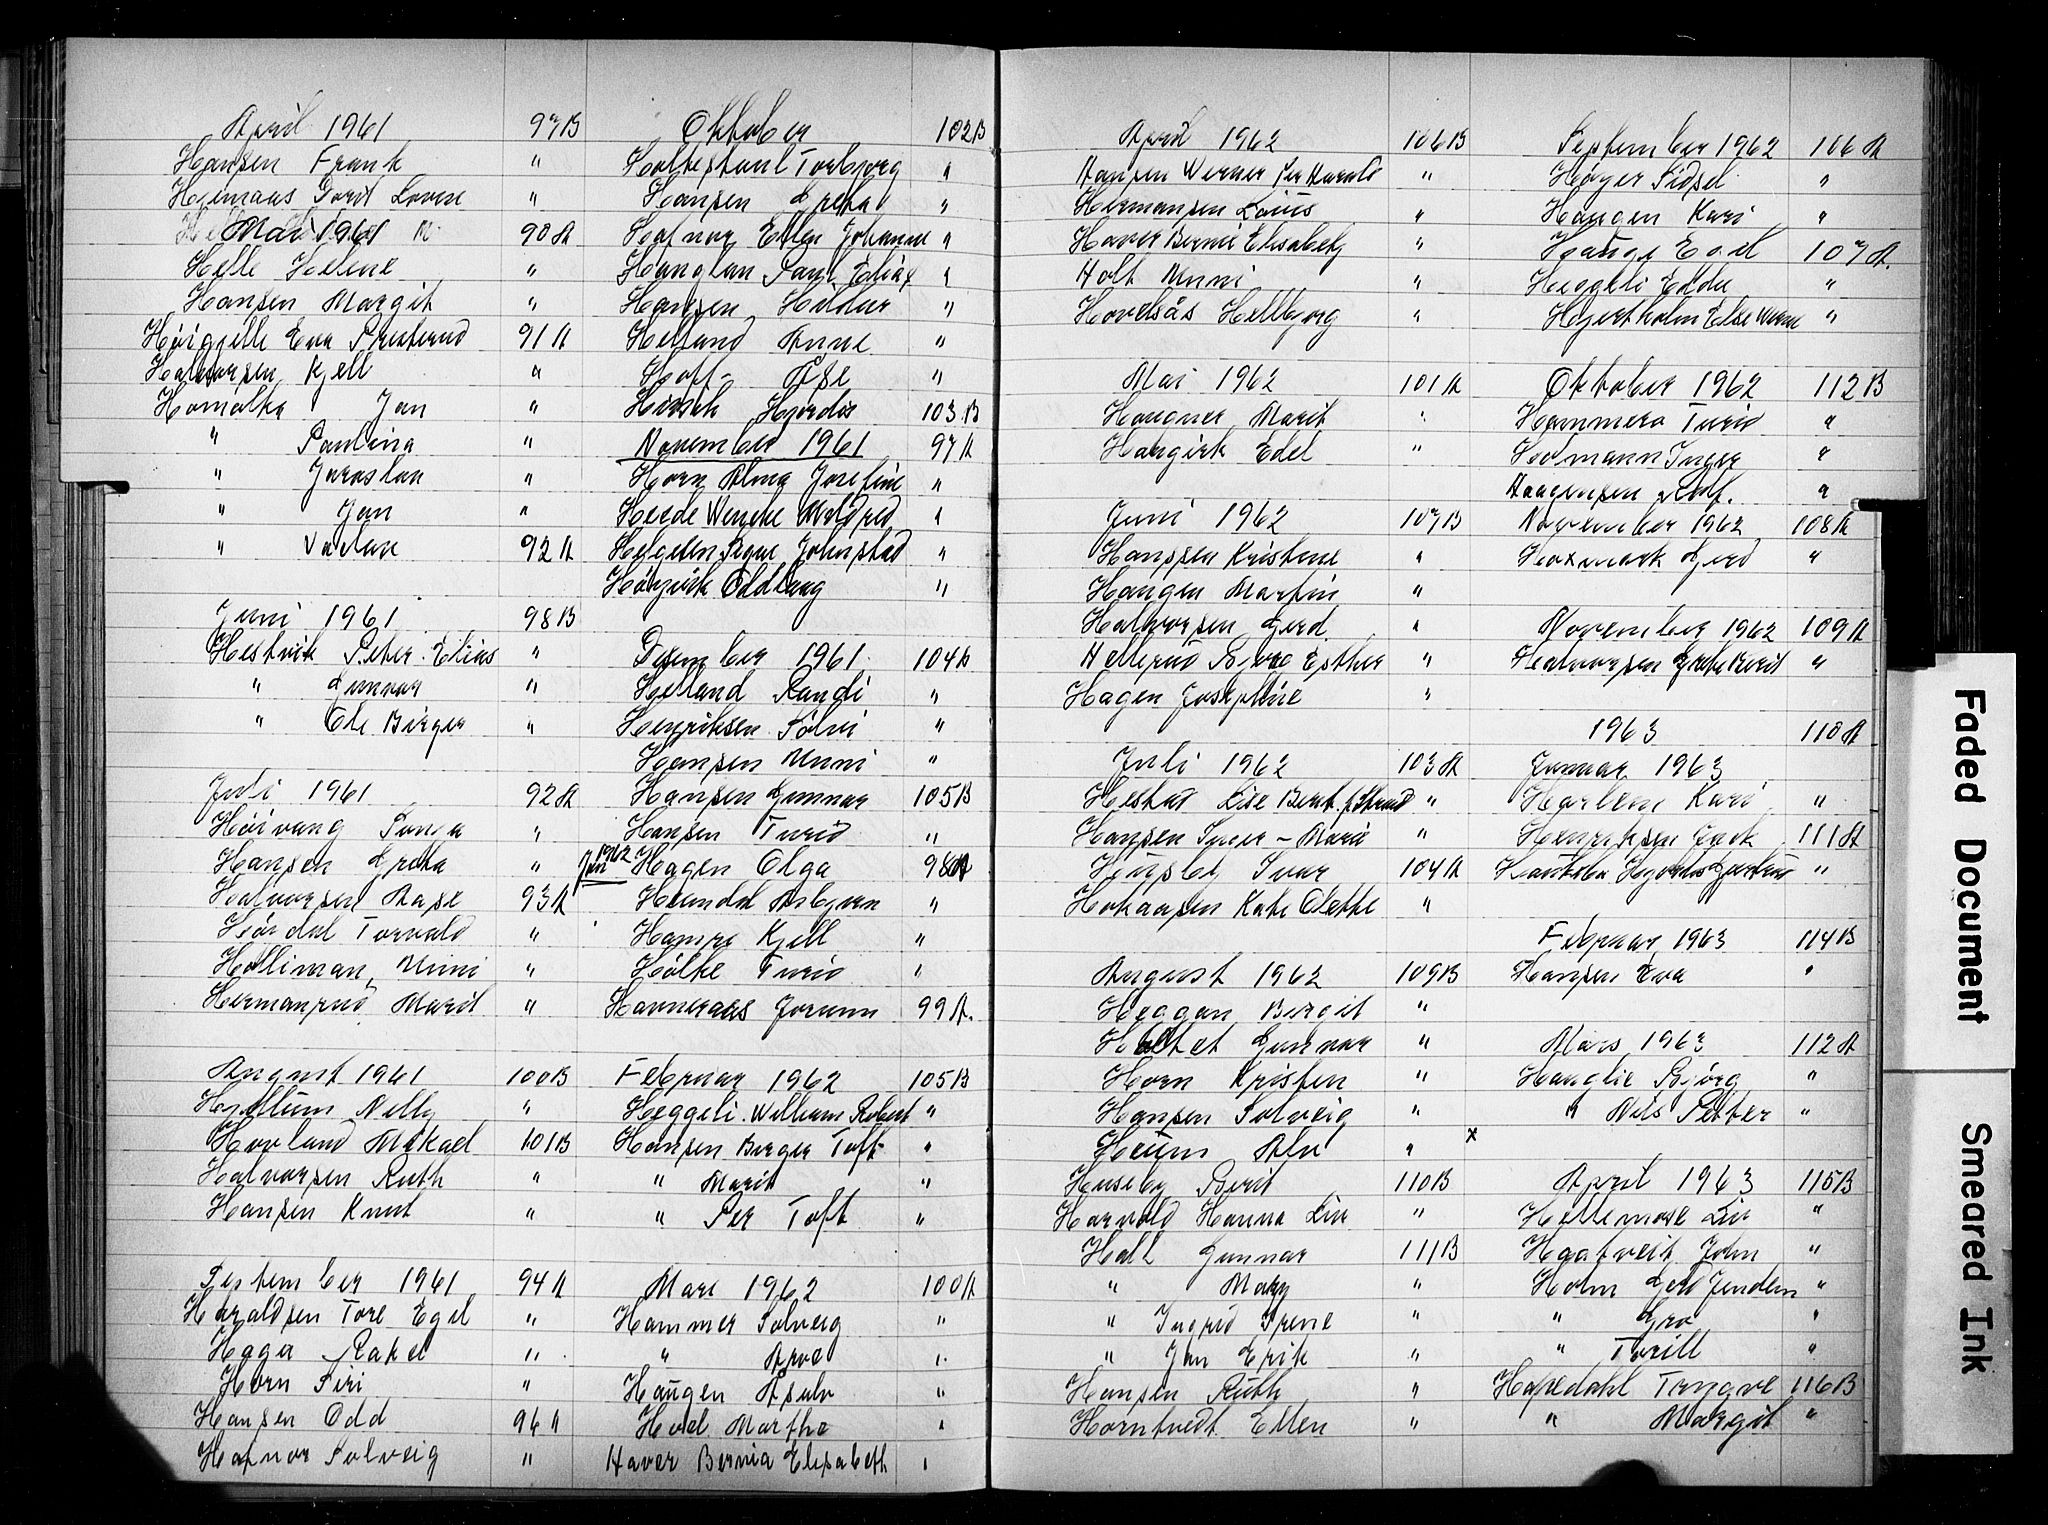 April 1961 97B
Hansen Frank "
Hjemaas Dorit Lovise "
Mai 1961 M. 90A
Helle Helene "
Hansen Margit "
Høigjelle Eva Presterud 91A
Halvorsen, Kjell "
Homolka Jan "
" Paulina "
" Jaroslav "
" Jan "
" Vaclav 92A
Juni 1961 98B
Hestvik Peter Elias "
" Gunnar "
" Ole Birger "
Juli 1961 92A
Høivang Sonja "
Hansen Grete "
Halvorsen Aase 93A
Hørdal Torvald "
Holliman, Unni "
Hermansrud Marit "
August 1961 100B
Hjellum Nelly "
Hovland Mikael 101B
Halvorsen Ruth "
Hansen Knut "
September 1961 94A
Haraldsen Tore Egil "
Haga Rakel "
Horn Siri "
Hansen Odd 96A
Hafnor Solveig "
Oktober 102B
Holtestaul Torbjørg "
Hansen Grethe "
Hafnor Ellen Johanne "
Hanglan Paul Elias "
Hansen Hildur "
Helland Anne "
Hoff Åse "
Hirsch Hjørdis 103B
November 1961 97A
Horn Alma Josefine "
Heede Wenche Mildred "
Helgesen Signe Johnstad "
Høigvik Oddlaug "
Desember 1961 104B
Helland Randi "
Henriksen Sølvi "
Hansen Unni "
Hansen Gunnar 105B
Hansen Turid "
Jan 1962 Hagen Olga 98A
Heimdal Asbjørn "
Hampe Kjell "
Hølke Turid "
Havneraas Jorunn 99A.
Februar 1962 105B
Heggeli William Robert "
Hansen Birger Toft "
" Marit "
" Per Toft "
Mars 1962 100A
Hammer Solveig "
" Arve "
Haugen Asulv "
Hoel Marthe "
Haver Bernia Elisabeth "
April 1962 106B
Hansen Werner Per Harald "
Hermansen Louis "
Haver Bernie Elisabeth "
Holt Unni "
Hovelsås Hellbjørg "
Mai 1962 101A
Haugner Marit "
Haugvik Edel "
Juni 1962 107B
Hanssen Kristine "
Haugen Martin "
Halvorsen Gerd "
Hellerud Bjørg Esther "
Hagen Josephine "
Juli 1962 103A
Hestad Lise Berit f. Strand "
Hansen Inger-Marie "
Huseby Ivar 104A
Hokaasen Kate Olette "
August 1962 109B
Heggan Birgit "
Holtet Gunnar "
Horn Kristen "
Hansen Solveig "
Heum Alv " x
Huseby Berit 110B
Harvold Hanna Liv "
Hall Gunnar 111B
" Mary "
" Ingrid Irene "
" Jan Erik "
Hansen Ruth "
Horntvedt Ellen "
September 1962 106A
Høyer Sidsel "
Haugen Kari "
Hauge Egil 107A.
Heggeli Edda "
Hjertholm Else Marie "
Oktober 1962 112B
Hammerø Turid "
Holmann Inger "
Haagensen Rolf. "
November 1962 108A
Hoxmark Gerd "
November 1962 109A
Halvorsen Grete Berit "
1963 110A
Januar 1963
Harlem Kari "
Henriksen Jack 111A
Haukebø Hjørdis Gjertrud "
Februar 1963 114B
Hansen Eva "
Mars 1963 112A
Hanglie Bjørg "
" Nils Petter "
April 1963 115B
Hellemose Liv "
Haatveit John "
Holm Odd Jendem "
" Gro "
" Torill "
Hafredahl Trygve 116B
" Margit "
Faded Document
Smeared Ink